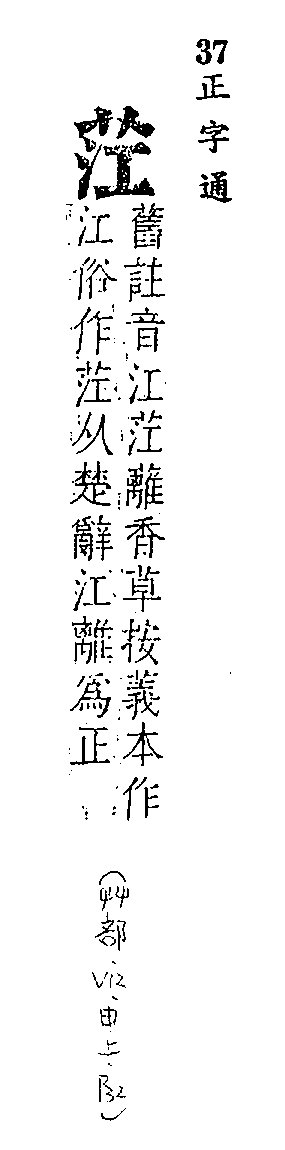 37正字通
茳
舊註音江茳離香草按義本作
江俗作茳从楚辭江離為正
(艸部